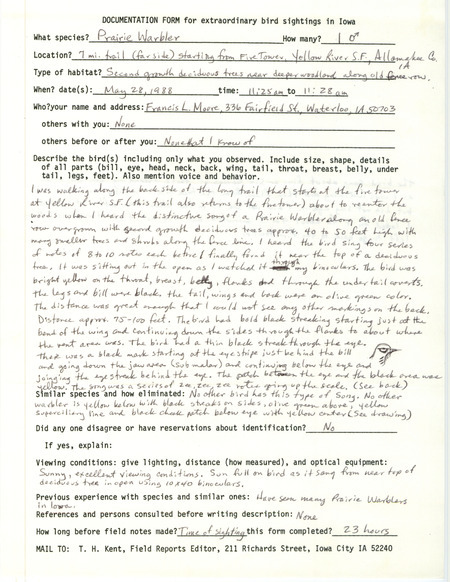 DOCUMENTATION FORM for extraordinary bird sightings in Iowa
What species? Prairie Warbler How many? 1 ♂
Location? 7 mi. trail (far side) starting from Fire Tower, Yellow River S.F., Allamakee Co. IA
Type of habitat? Second growth deciduous trees near deeper woodland along old fence row.
When? date(s): May 28, 1988 time: 11:25am to 11:28 am
Who? your name and address: Francis L. Moore, 336 Fairfield St., Waterloo, IA 50703
others with you: None
others before or after you: None that I know of
Describe the bird(s) including only what you observed. Include size, shape, details
of all parts (bill, eye, head, neck, back, wing, tail, throat, breast, belly, under
tail, legs, feet). Also mention voice and behavior.
I was walking along the back side of the long trail that starts at the fire tower
at Yellow River S.F. (this trail also returns to the fire tower) about to reenter the
woods when I heard the distinctive song of a Prairie Warbler along an old fence
row overgrown with second growth deciduous trees approx. 40 to 50 feet high with
many smaller trees and shrubs along the fence line. I heard the bird sing four series
of notes of 8 to 10 notes each before I finally found it near the top of a deciduous
tree. It was sitting out in the open as I watched it through my binoculars. The bird was
bright yellow on the throat, breast, belly, flanks and through the undertail coverts.
the legs and bill were black. the tail, wings and back were an olive green color.
The distance was great enough that I could not see any other markings on the back.
Distance approx. 75-100 feet. The bird had bold black streaking starting just at the
bend of the wing and continuing down the sides through the flanks to about where
the vent area was. The bird had a thin black streak through the eye.
There was a black mark starting at the eye stripe just behind the bill
and going down the jaw area (sub malar) and continuing below the eye and
joining the eye streak behind the eye. The patch between the eye and the black area was
yellow. The song was a series of zee, zee, zee notes going up the scale. (See back)
Similar species and how eliminated: No other bird has this type of song. No other
warbler is yellow below with black streaks on sides, olive green above, yellow
superciliary line and black cheek patch below eye with yellow center (See drawing)
Did any one disagree or have reservations about identification? No
If yes, explain:
Viewing conditions: give lighting, distance (how measured), and optical equipment:
Sunny, excellent viewing conditions. Sun full on bird as it sang from near top of
deciduous tree in open using 10x40 binoculars.
Previous experience with species and similar ones: Have seen many Prairie Warblers
in Iowa.
References and persons consulted before writing description: None
How long before field notes made? Time of sighting this form completed? 23 hours
MAIL TO: T. H. Kent, Field Reports Editor, 211 Richards Street, Iowa City IA 52240